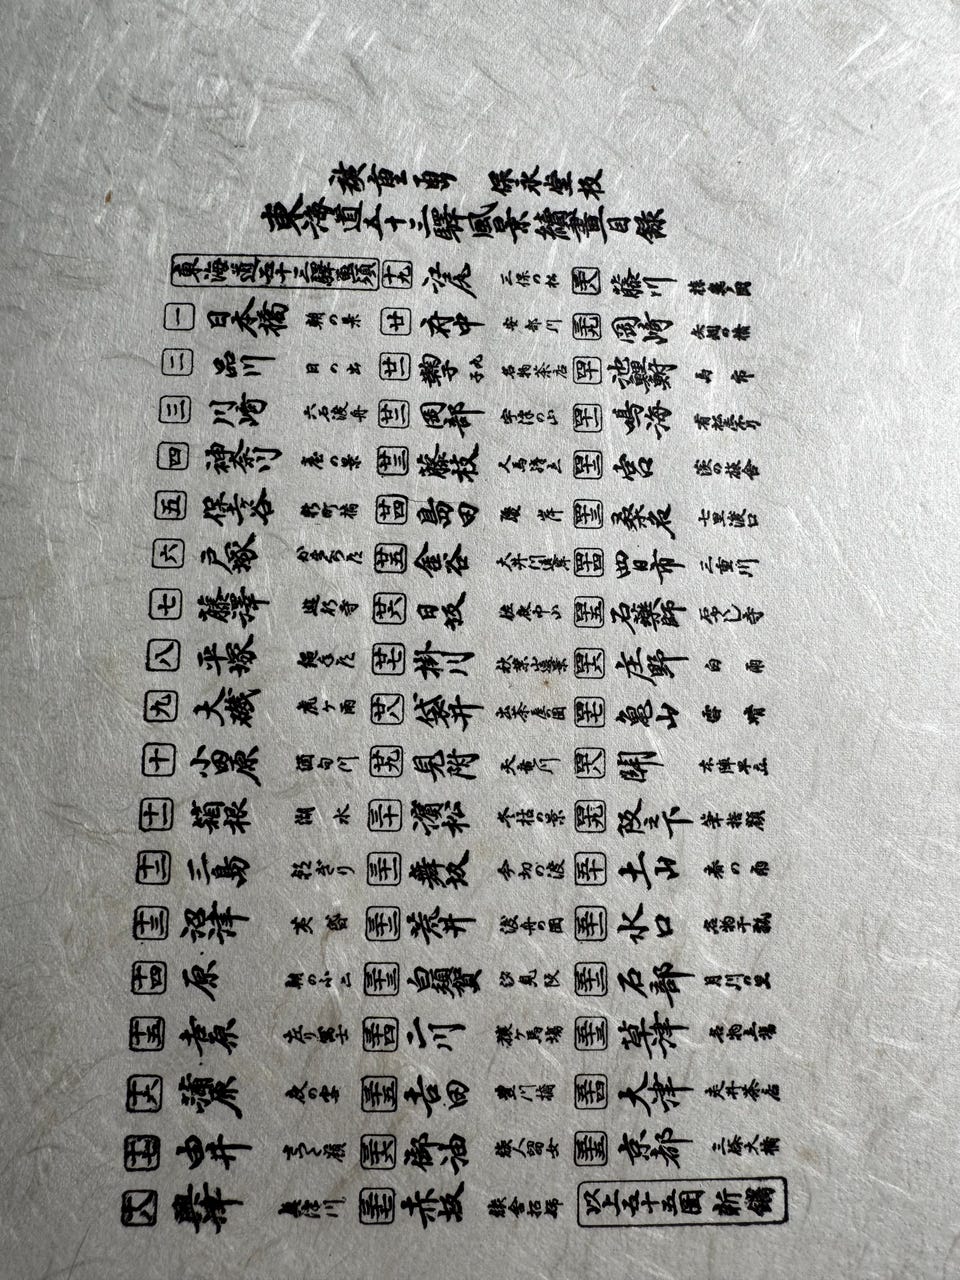 廣重画 保永堂板
東海道五十三驛風景續畫目録
東海道五十三驛画頭
一 日本橋 朝の景
二 品川 日の出
三 川崎 渡舟
四 神奈川 臺の景
五 保土ヶ谷 新町橋
六 戸塚
七 藤澤 遊行寺
八 平塚
九 大磯 虎ヶ雨
十 小田原 酒匂川
十一 箱根 湖水
十二 三島 朝ぎり
十三 沼津 黄昏
十四 原 朝の不二
十五 吉原 左り富士
十六 蒲原 夜の雪
十七 由井 さつた嶺
十八 興津 興津川
十九 江尻 三保の松
廿 府中 安部川
廿一 鞠子 丸子 名物茶店
廿二 岡部 宇津の山
廿三 藤枝 人馬継立
廿四 島田 駿岸
廿五 金谷 大井川遠岸
廿六 日坂 佐夜中山
廿七 掛川 秋葉山遠景
廿八 袋井 出茶屋圖
廿九 見附 天竜川
三十 濱松 冬枯の景
三十一 舞坂 今切の渡
三十二 荒井 渡舟の圖
三十三 白須賀 汐見坂
三十四 二川 猿ヶ馬場
三十五 吉田 豊川橋
三十六 御油 旅人留女
三十七 赤坂 旅舎招婦
三十八 藤川 棒鼻ノ圖
三十九 岡崎 矢矧の橋
四十 池鯉鮒 馬市
四十一 鳴海 有松絞り
四十二 宮 浜の旅舎
四十三 桑名 七里渡口
四十四 四日市 三重川
四十五 石藥師 石やくし寺
四十六 庄野 白雨
四十七 亀山 雪晴
四十八 關 本陣早立
四十九 阪之下 筆捨嶺
五十 土山 春の雨
五十一 水口 名物干瓢
五十二 石部 目川の里
五十三 草津 名物立場
五十四 大津 走井茶店
五十五 京都 三条大橋
以上五十五圖 新鐫